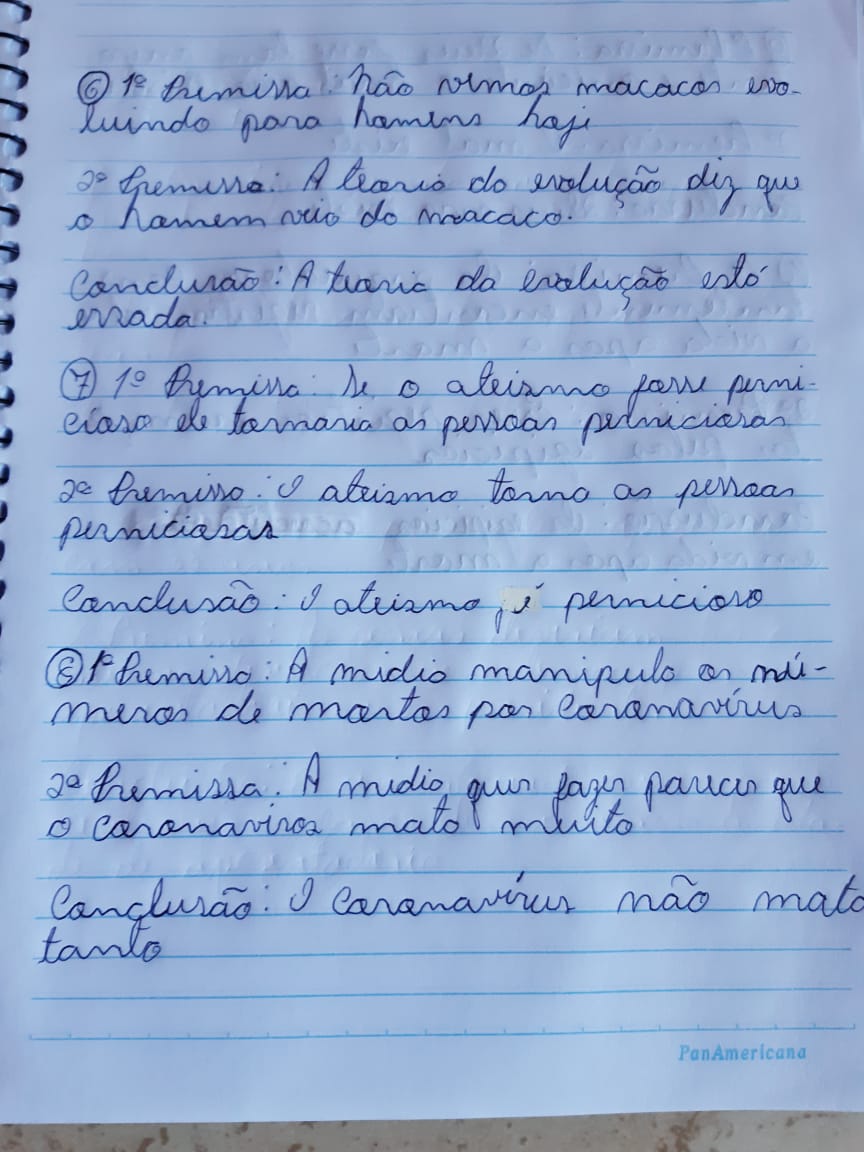 ⑥ 1º Premissa: Não vemos macacos evo-
luindo para homens hoje
2º Premissa: A teoria da evolução diz que
o homem veio do macaco.
Conclusão: A teoria da evolução está
errada.
⑦ 1º Premissa: Se o ateismo fosse perni-
cioso ele tornaria as pessoas perniciosas
2º Premissa: O ateismo torna as pessoas
perniciosas
Conclusão: O ateismo, é pernicioso
⑧ 1º Premissa: A midia manipula os nú-
meros de mortos por Coronavírus
2º Premissa: A midia quer fazer parecer que
o coronaviros mata muito
Conclusão: O Coronavírus não mata
tanto
PanAmericana